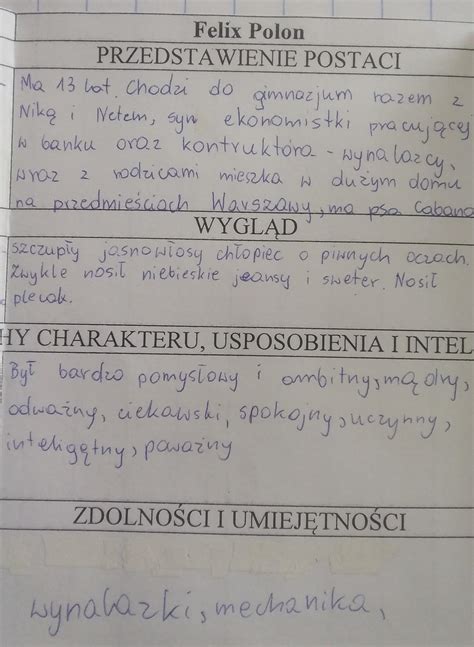 Felix Polon
PRZEDSTAWIENIE POSTACI
Ma 13 lat. Chodzi do gimnazjum razem z
Niką i Netem, syn ekonomistki pracującej
w banku oraz kontruktóra - wynalazcy,
wraz z rodzicami mieszka w dużym domu
na przedmieściach Warszawy, ma psa Cabana
WYGLĄD
szczupły jasnowłosy chłopiec o piwnych oczach.
Zwykle nosił niebieskie jeansy i sweter. Nosił
plecak.
HY CHARAKTERU, USPOSOBIENIA I INTEL
Był bardzo pomysłowy i ambitny, mądry,
odważny, ciekawski, spokojny, uczynny,
inteligętny, poważny
ZDOLNOŚCI I UMIEJĘTNOŚCI
wynalazki, mechanika,